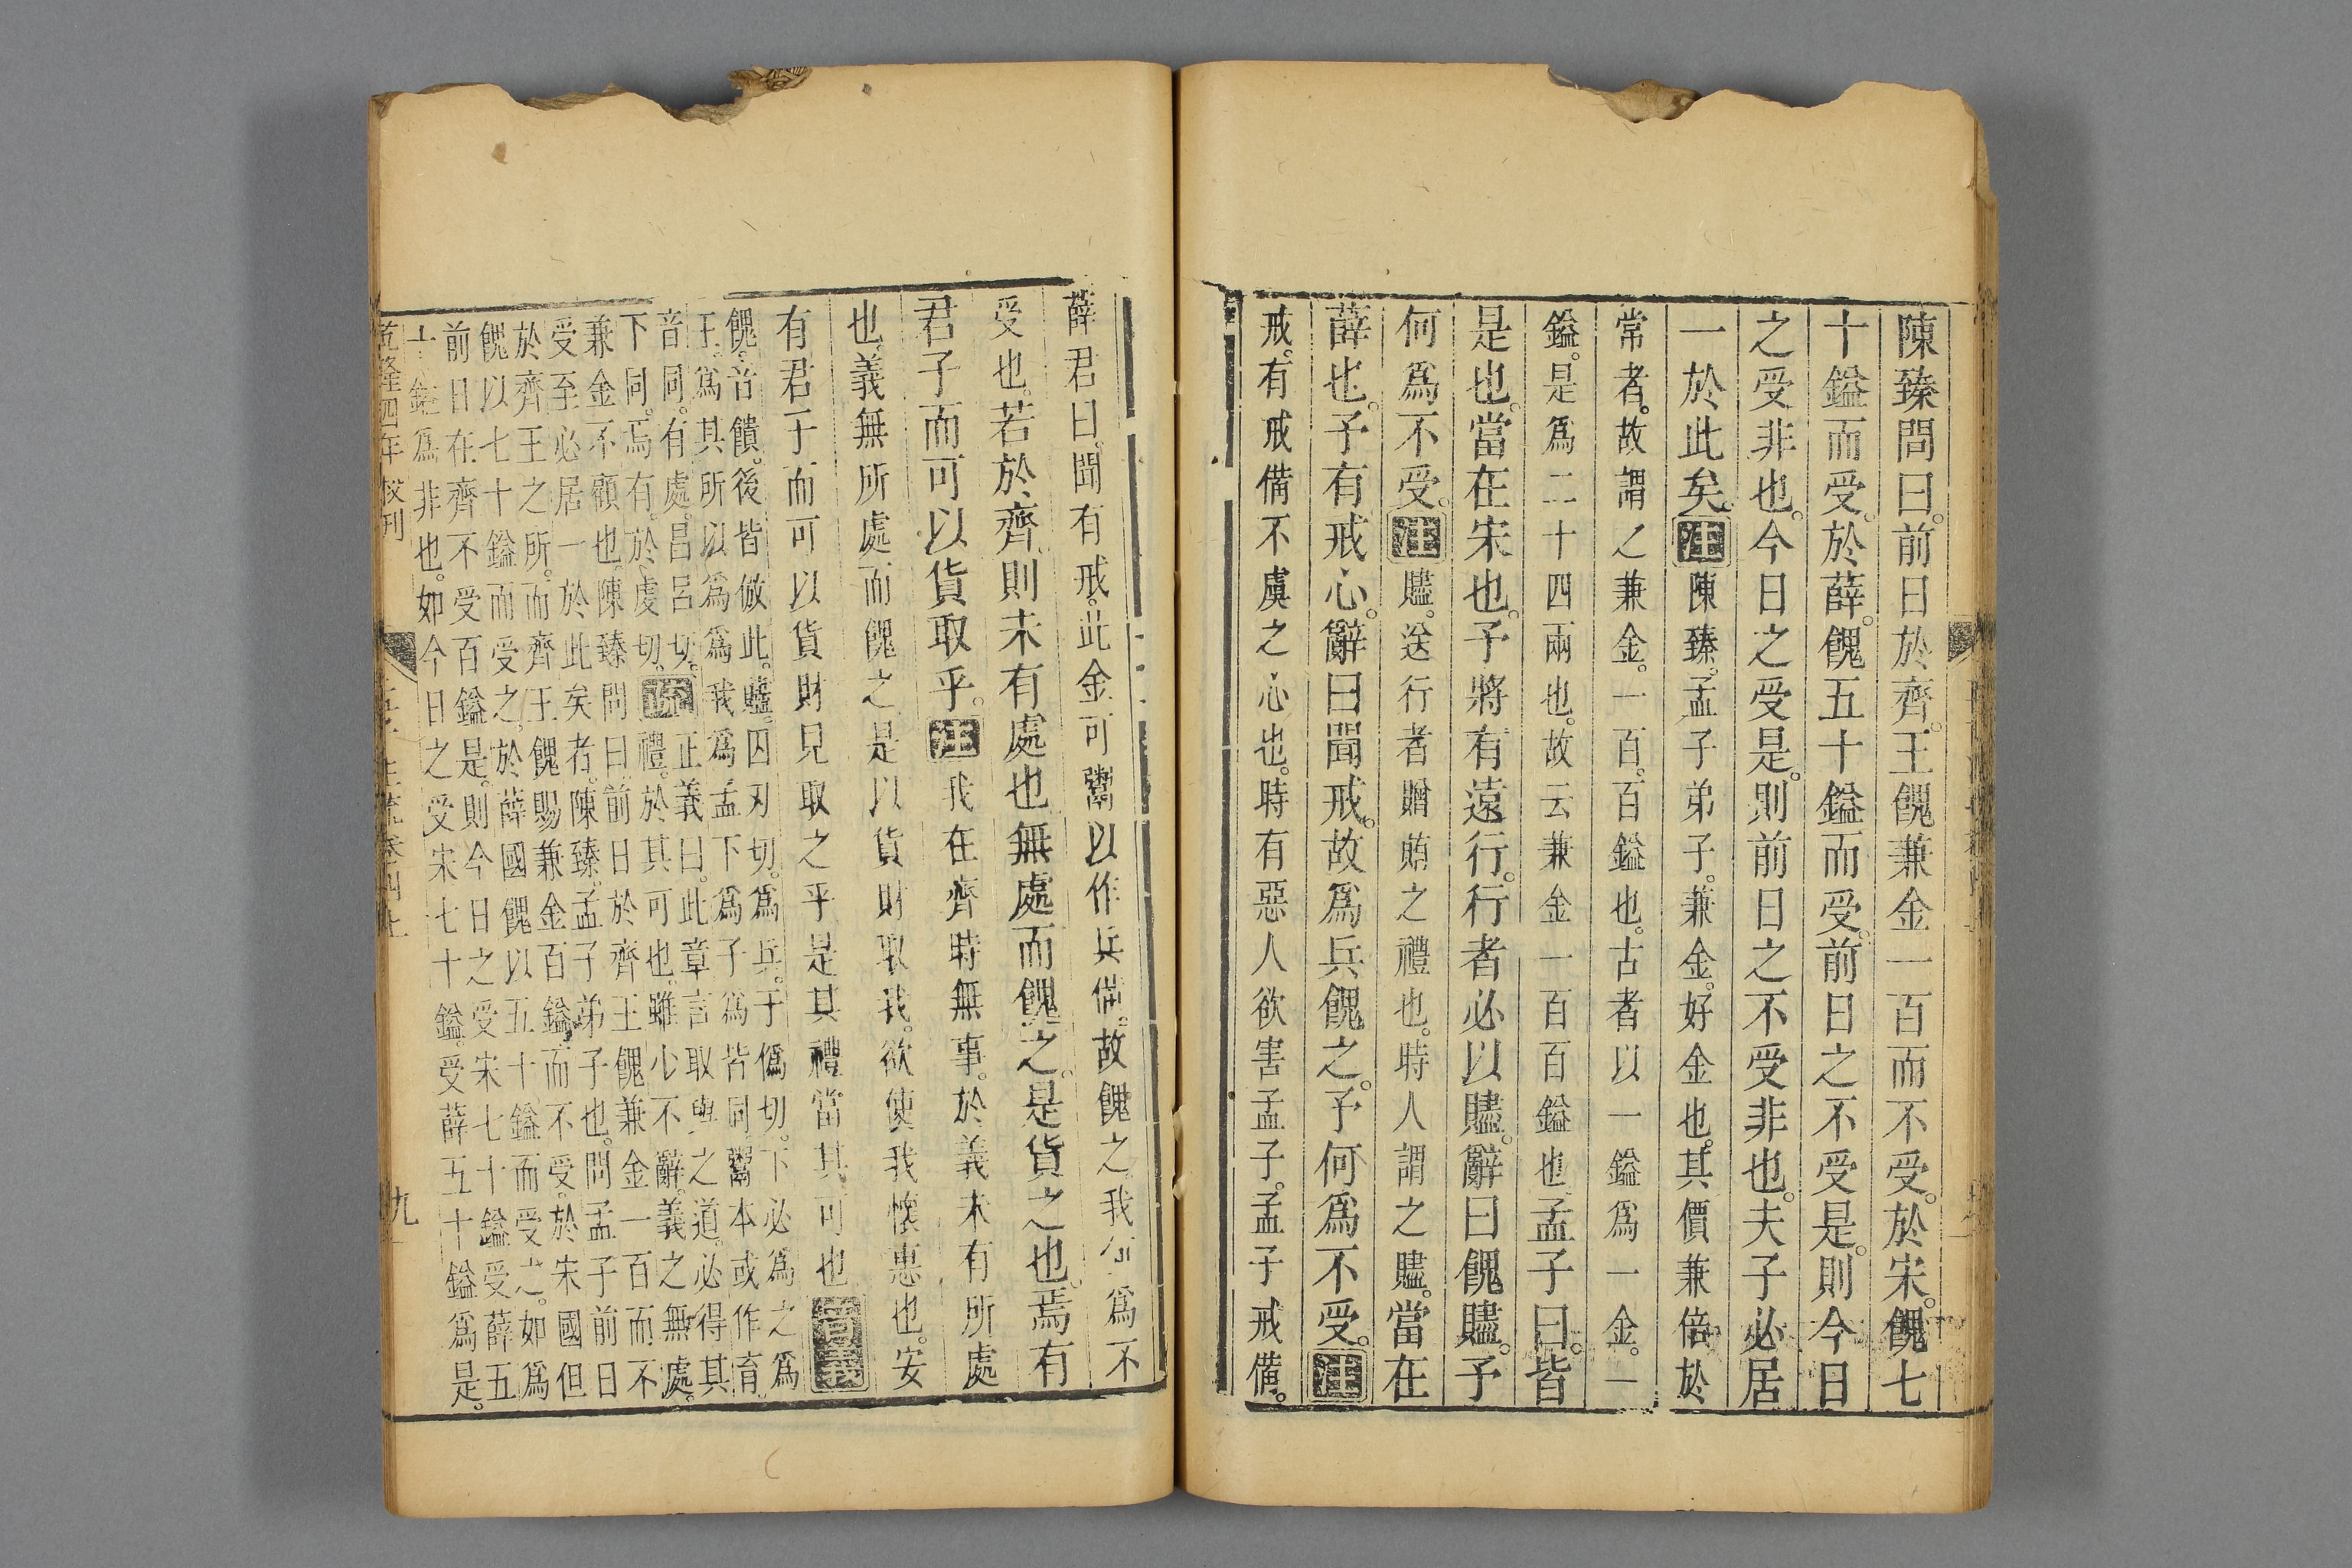 陳臻問曰。前日於齊。王餽兼金一百而不受。於宋。餽七
十鎰而受。於薛。餽五十鎰而受。前日之不受是。則今日
之受非也。今日之受是。則前日之不受非也。夫子必居
一於此矣。注陳臻。孟子弟子。兼金。好金也。其價兼倍於
常者。故謂之兼金。一百。百鎰也。古者以一鎰爲一金。一
鎰。是爲二十四兩也。故云兼金一百百鎰也孟子曰。皆
是也。當在宋也。予將有遠行。行者必以贐。辭曰餽贐。予
何爲不受。注贐。送行者贈賄之禮也。時人謂之贐。當在
薛也。予有戒心。辭曰聞戒。故爲兵餽之。予何爲不受。注
戒。有戒備不虞之心也。時有惡人欲害孟子。孟子戒備。
薛君曰。聞有戒。此金可鬻以作兵備。故餽之。我何爲不
受也。若於齊則未有處也無處而餽之。是貨之也。焉有
君子而可以貨取乎。注我在齊時無事。於義未有所處
也。義無所處而餽之。是以貨財取我。欲使我懷惠也。安
有君子而可以貨財見取之乎是其禮當其可也音義
餽。音饋。後皆倣此。贐。囚刃切。爲兵。于僞切。下必爲之爲
王。爲其所以爲爲我爲孟下爲子爲皆同鬻本或作育
音同。有處。昌呂切。疏正義曰。此章言取與之道。必得其
下同。焉有。於虔切。禮。於其可也。雖少不辭。義之無處。
兼金不顧也。陳臻問曰。前日於齊王餽兼金一百而不
受至必居一於此矣者。陳臻。孟子弟子也。問孟子前日
於齊王之所。而齊王餽賜兼金百鎰。而不受。於宋國但
餽以七十鎰而受之。於薛國餽以五十鎰而受之。如爲
前日在齊不受百鎰是。則今日之受宋七十鎰受薛五
十鎰爲非也。如今日之受宋七十鎰。受薛五十鎰爲是。
乾隆四年校刊
注疏卷四上
九